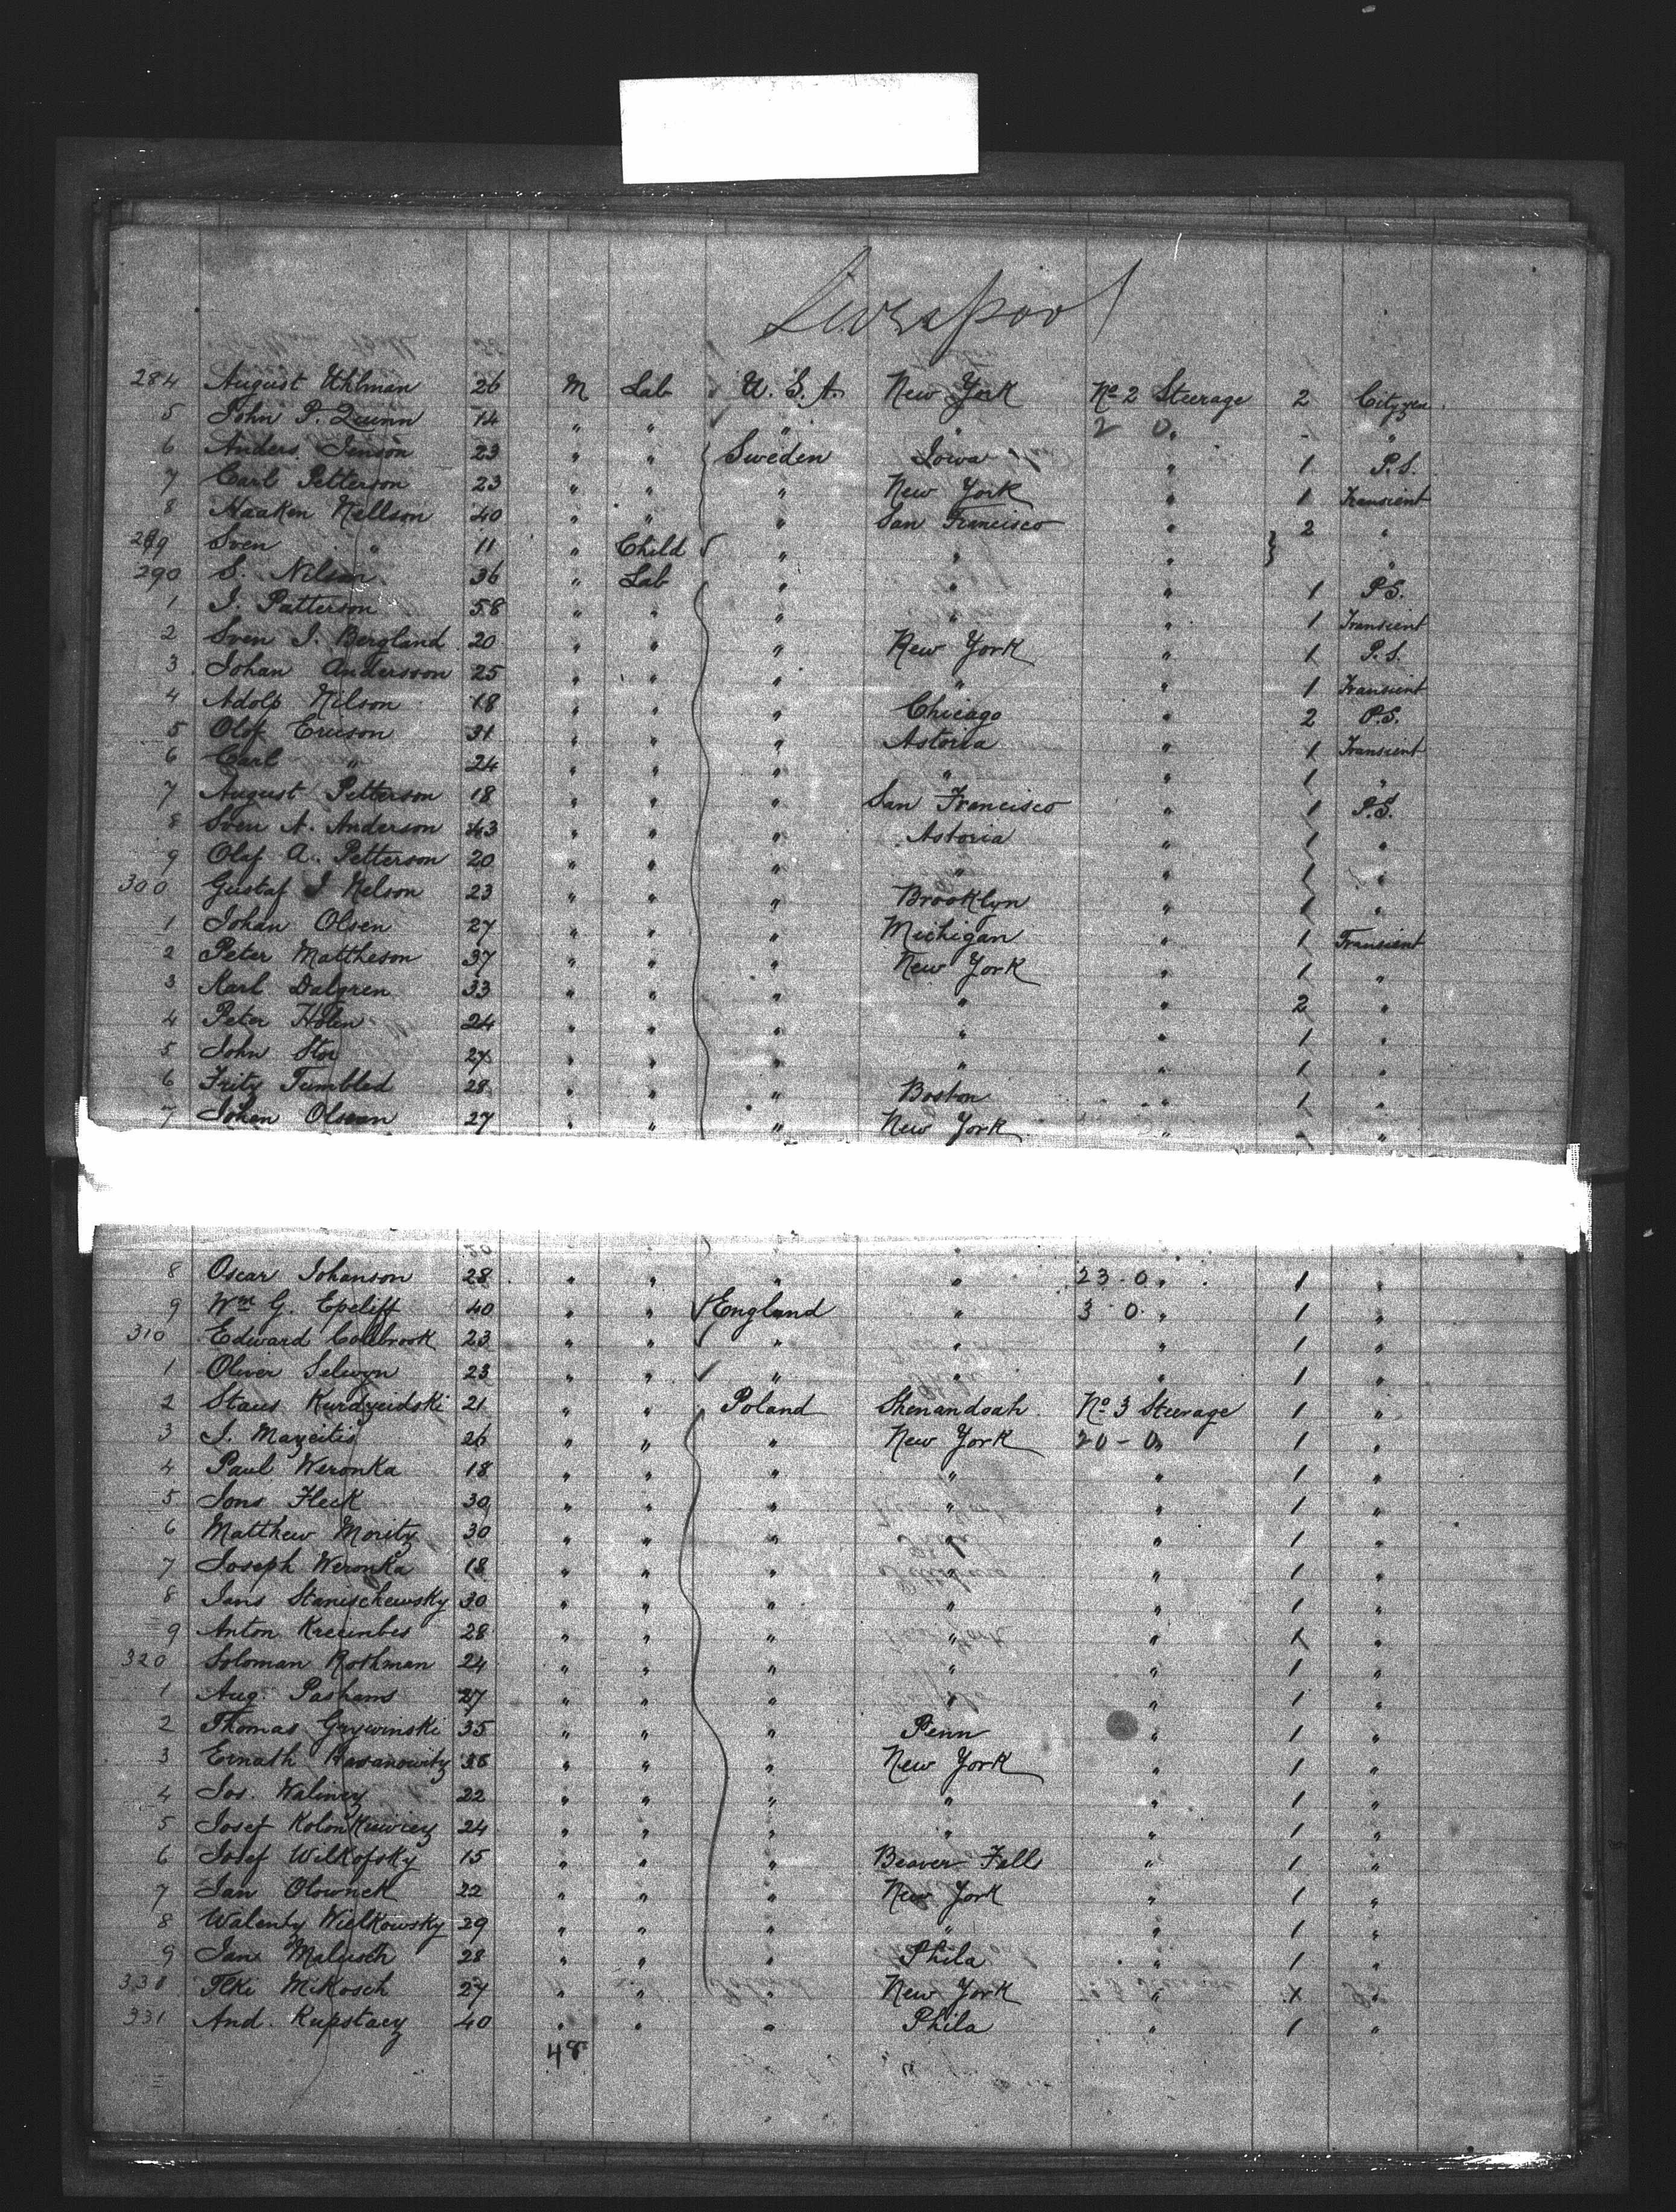 Liverpool
284 August Uhlman 26 M Lab U.S.A. New York No 2 Steerage 2 Cityzen
5 John P. Quinn 14 " " " " 2 0 " - "
6 Anders Jenson 23 " " Sweden Iowa " 1 P.S.
7 Carl Petterson 23 " " " New York " 1 Transient
8 Haaken Nellson 40 " " " San Francisco " 2 "
289 Sven " 11 " Child " " " "
290 S. Nilson 36 " Lab " " " 1 P.S.
1 J. Patterson 58 " " " " " 1 Transient
2 Sven J. Bergland 20 " " " New York " 1 P.S.
3 Johan Andersson 25 " " " " " 1 Transient
4 Adolp Nilson 18 " " " Chicago " 2 P.S.
5 Olof Ericson 31 " " " Astoria " 1 Transient
6 Carl " 24 " " " " " 1 "
7 August Petterson 18 " " " San Francisco " 1 P.S.
8 Sven A. Anderson 43 " " " Astoria " 1 "
9 Olaf A. Petterson 20 " " " " " 1 "
300 Gustaf J Nelson 23 " " " Brooklyn " 1 "
1 Johan Olsen 27 " " " Michigan " 1 Transient
2 Peter Mattheson 37 " " " New York " 1 "
3 Karl Dalgren 33 " " " " " 2 "
4 Peter Holen 24 " " " " " 1 "
5 John Stor 27 " " " " " 1 "
6 Fritz Tumblad 28 " " " Boston " 1 "
7 Johen Olsson 27 " " " New York " - "
8 Oscar Johanson 28 " " " " 23-0 " 1 "
9 Wm G. Epeliff 40 " " England " 3 0 " 1 "
310 Edward Colebrook 23 " " " " " 1 "
1 Oliver Selwyn 23 " " " " " 1 "
2 Staus Kurdzeidski 21 " " Poland Shenandoah No 3 Steerage 1 "
3 J. Mazeitis 26 " " " New York 20-0 " 1 "
4 Paul Weronka 18 " " " " " 1 "
5 Jons Fleck 30 " " " " " 1 "
6 Matthew Moritz 30 " " " " " 1 "
7 Joseph Weronka 18 " " " " " 1 "
8 Jans Stanischewsky 30 " " " " " 1 "
9 Anton Kreunbes 28 " " " " " X "
320 Soloman Rothman 24 " " " " " 1 "
1 Aug. Pashams 27 " " " " " 1 "
2 Thomas Grywinski 35 " " " Penn " 1 "
3 Ernath 36 " " " New York " 1 "
4 Jos. Waliney 22 " " " " " 1 "
5 Josef Kolonkiewicz 24 " " " " " 1 "
6 Josef Wilkofsky 15 " " " Beaver Falls " 1 "
7 Jan Olownek 22 " " " New York " 1 "
8 Walenty Wielkowsky 29 " " " " " 1 "
9 Jan Malusch 28 " " " Phila " 1 "
330 Ilki Mikosch 27 " " " New York " X "
331 And. Kupstacz 40 " " " Phila " 1 "
48